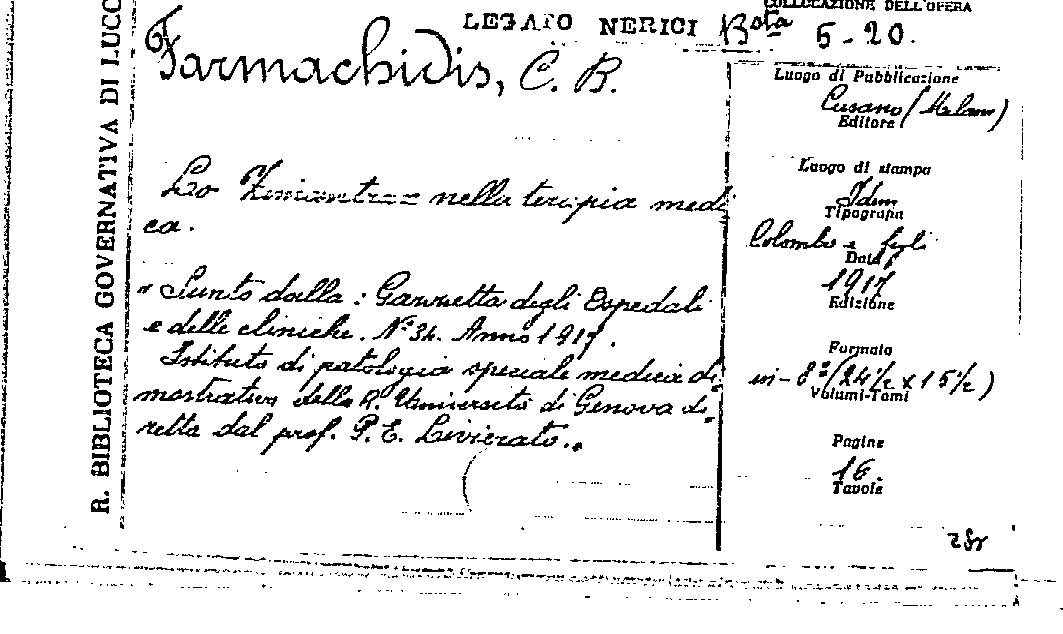 COLLOCAZIONE DELL'OPERA
LEGATO NERICI Bsta 5-20.
R. BIBLIOTECA GOVERNATIVA DI LUCC
Farmachidis, C. B.
Lo nella terapia medi
ca.
" Sunto dalla : Gazzetta degli Ospedali
e delle cliniche. N.° 34. Anno 1917.
Istituto di patologia speciale medica di=
mostrativa della R. Università di Genova di=
retta dal prof. P. E. Livierato. „
Luogo di Pubblicazione
Cusano (Milano)
Editore
Luogo di stampa
Idem
Tipografia
Colombo e figli
Data
1917
Edizione
Formato
in-8° (24½ x 15½)
Volumi-Tomi
Pagine
16.
Tavole